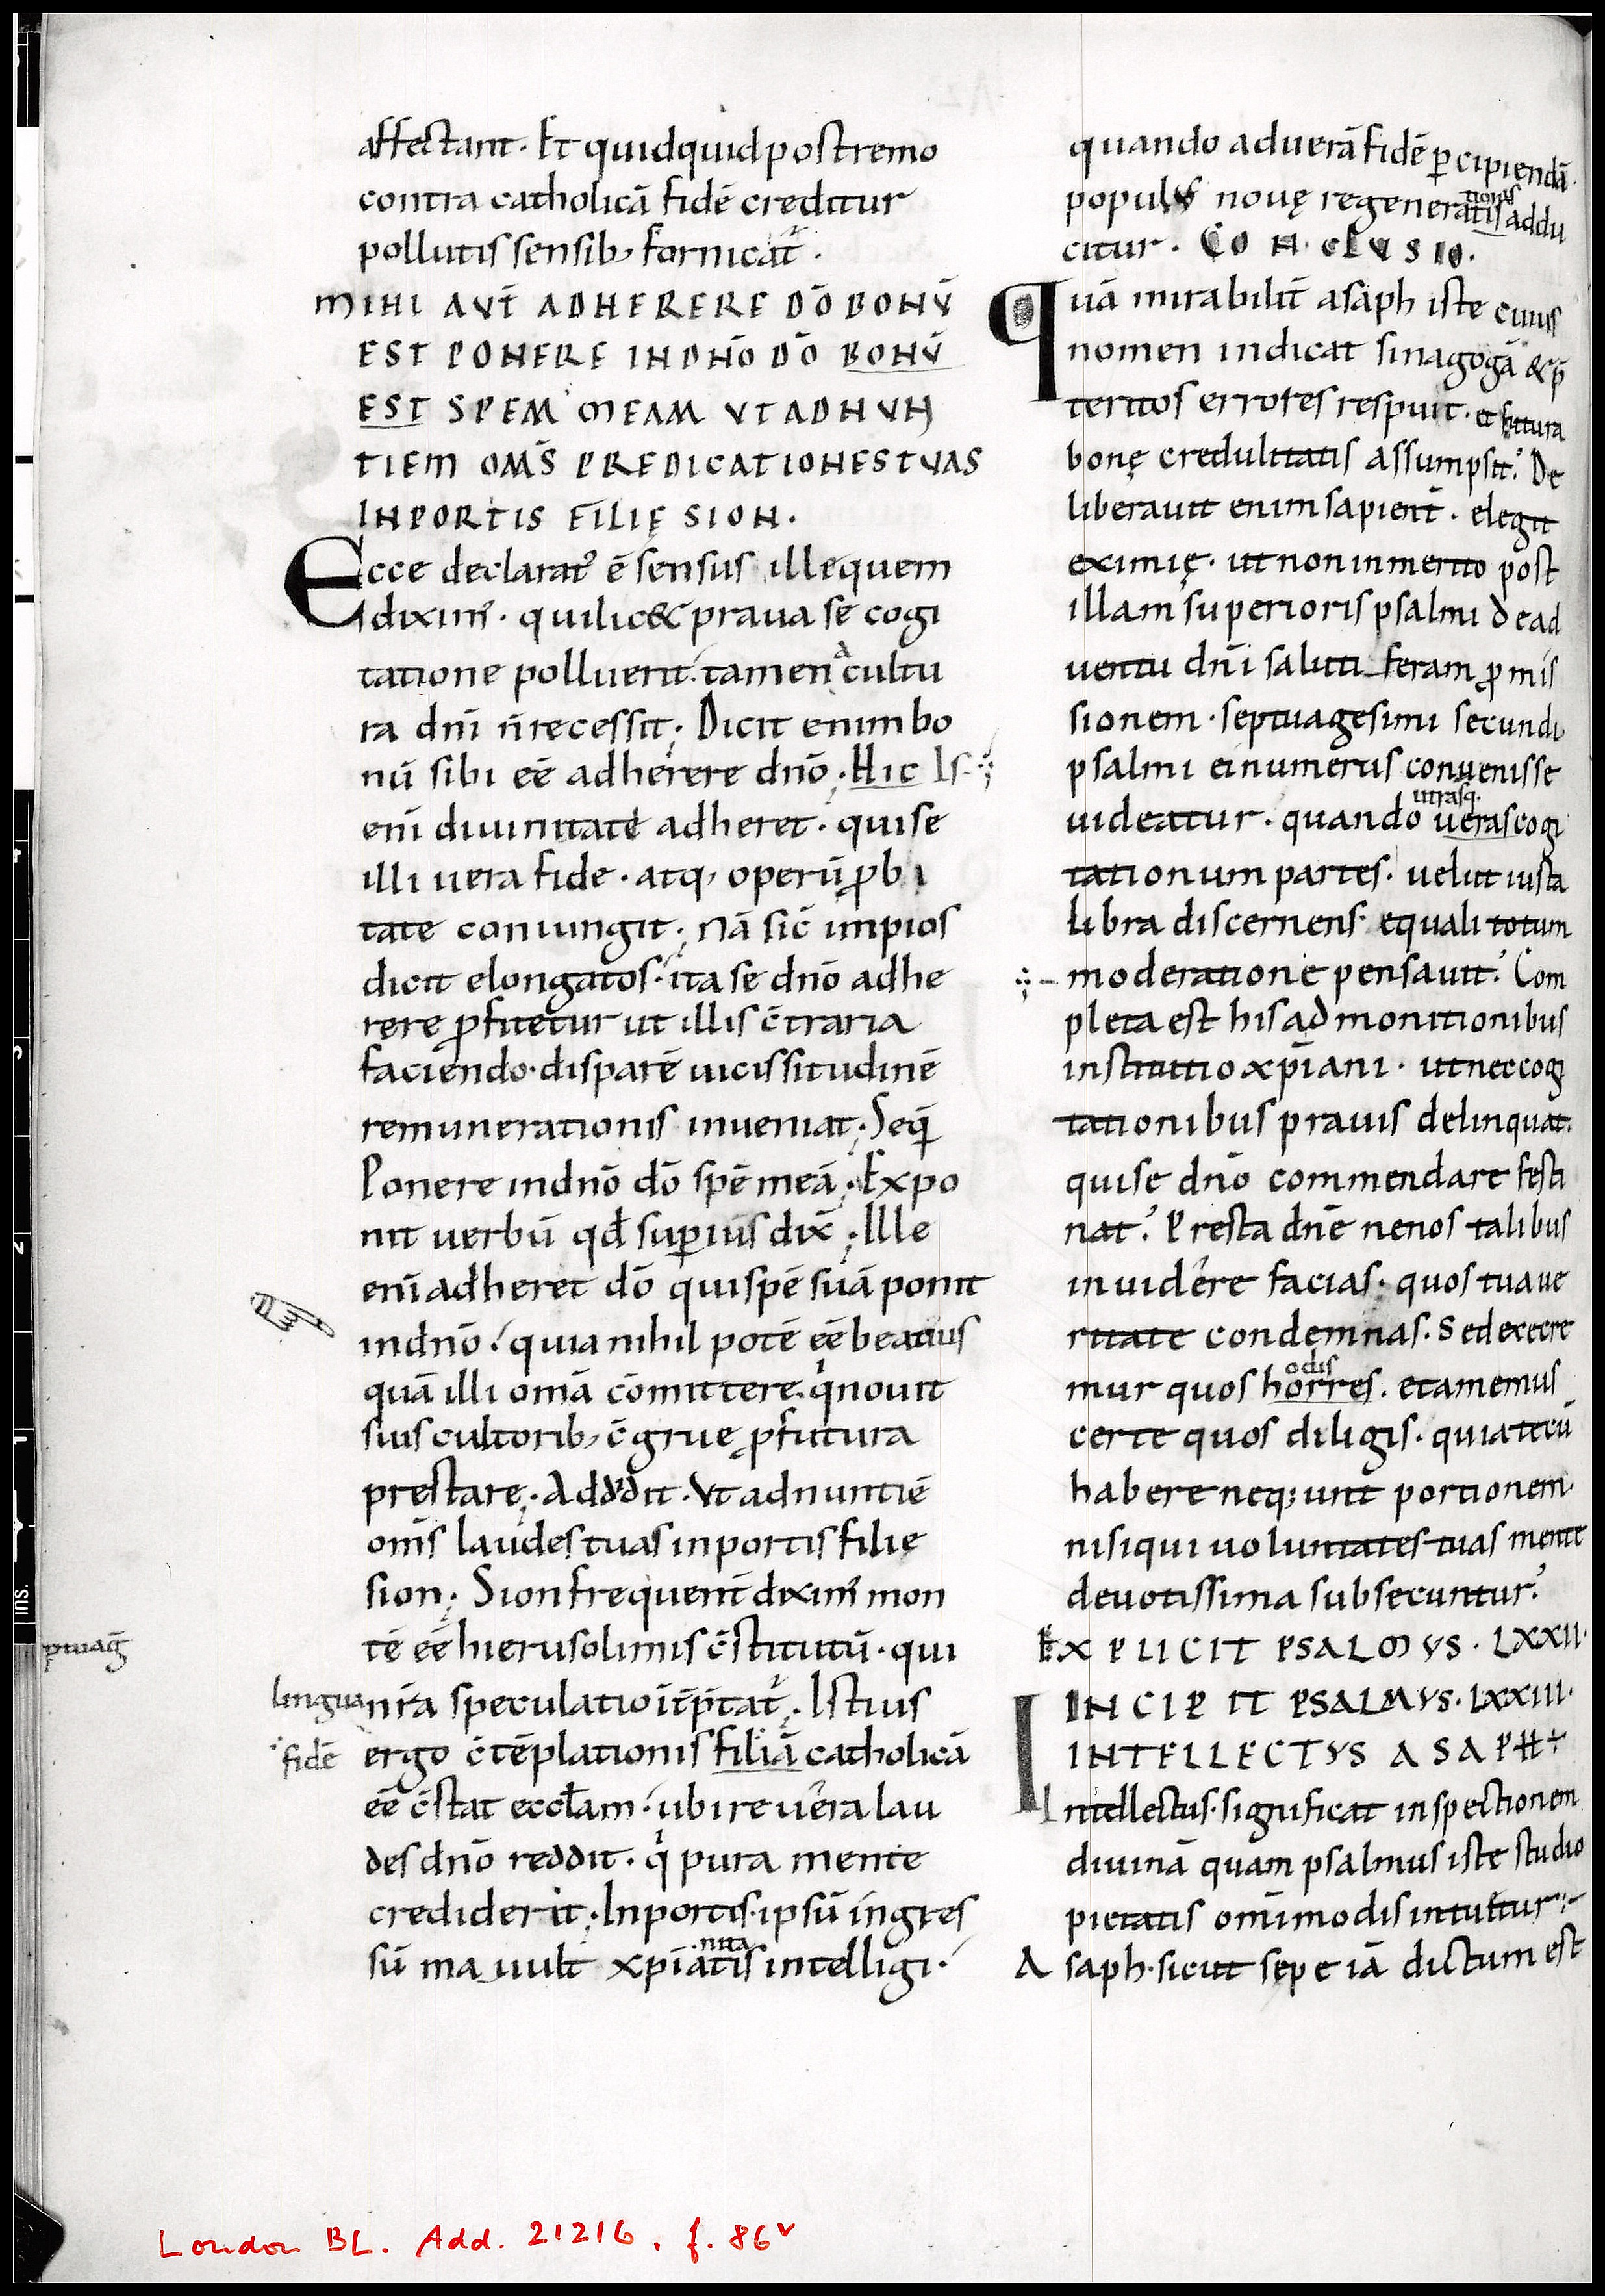 affectant. Et quidquid postremo
contra catholicā fidē creditur
pollutis sensib; fornicat᷑.
MIHI AUT̄ ADHERERE DŌ BONŪ
EST PONERE IN DNŌ DŌ BONŪ
EST SPEM MEAM UT ADNUN
TIEM OM̄S PREDICATIONES TUAS
IN PORTIS FILIĘ SION.
Ecce declarat᷑ ē sensus ille quem
diximꝰ. qui lic& praua se cogi
tatione polluerit. tamen a cultu
ra dn̄i n̄ recessit; Dicit enim bo
nū sibi eē adherere dn̄o. Hic Is
eni diuinitate adheret. qui se
illi uera fide. atq; operū ꝓbi
tate coniungit; Nā sic̄ impios
dicit elongatos. ita se dn̄o adhe
rere ꝓfitetur ut illis c̄traria
faciendo. disparē uicissitudinē
remunerationis inueniat; Seq̄
Ponere in dn̄o dō spē meā; Expo
nit uerbū qđ suꝑius dix̄; Ille
eni adheret dō qui spē suā ponit
in dn̄o. quia nihil potē eē beatius
quā illi om̄a c̄mittere. q̄ nouit
suis cultorib; c̄grue ꝓfutura
prestare; Addidit. Ut adnuntiē
om̄s laudes tuas in portis filię
sion; Sion frequent̄ diximꝰ mon
tē eē hierusolimis c̄stitutū. qui
ptuaḡ
lingua nr̄a speculatio it̄p̄tat᷑; Istius
fidē ergo c̄tēplationis filiā catholicā
eē c̄stat eccl̄am. ubi re uera lau
des dn̄o reddit. q̄ pura mente
crediderit; In portis. ipsū ingres
nita
sū mauult xp̄iatis intelligi.
quando ad uerā fidē ꝑcipiendā
tionis
populus nouę regeneratis addu
citur. CONCLUSIO.
Quā mirabilit̄ asaph iste cuius
nomen indicat sinagogā & p̄
teritos errores respuit. et futura
bonę credulitatis assumpsit. De
liberauit enim sapient̄. elegit
eximię. ut non inmerito post
illam superioris psalmi de ad
uentu dn̄i salutiferam ꝓmis
sionem. septuagesimi secundi
psalmi ei numerus conuenisse
utrasq.
uideatur. quando ueras cogi
tationum partes. uelut iusta
libra discernens equali totum
moderatione pensauit. Com
pleta est his admonitionibus
institutio xp̄iani. ut nec cogi
tationibus prauis delinquat.
qui se dn̄o commendare festi
nat. Presta dn̄e ne nos talibus
inuidere facias. quos tua ue
ritate condemnas. Sed execre
odis
mur quos horres. et amemus
certe quos diligis. quia tecū
habere neq;unt portionem.
nisi qui uoluntates tuas mente
deuotissima subsecuntur.
EXPLICIT PSALMUS. LXXII.
INCIPIT PSALMUS. LXXIII.
INTELLECTUS ASAPH
Intellectus. significat inspectionem
diuinā quam psalmus iste studio
pietatis om̄imodis intuetur
Asaph. sicut sepe iā dictum est
London BL. Add. 21216. f. 86v